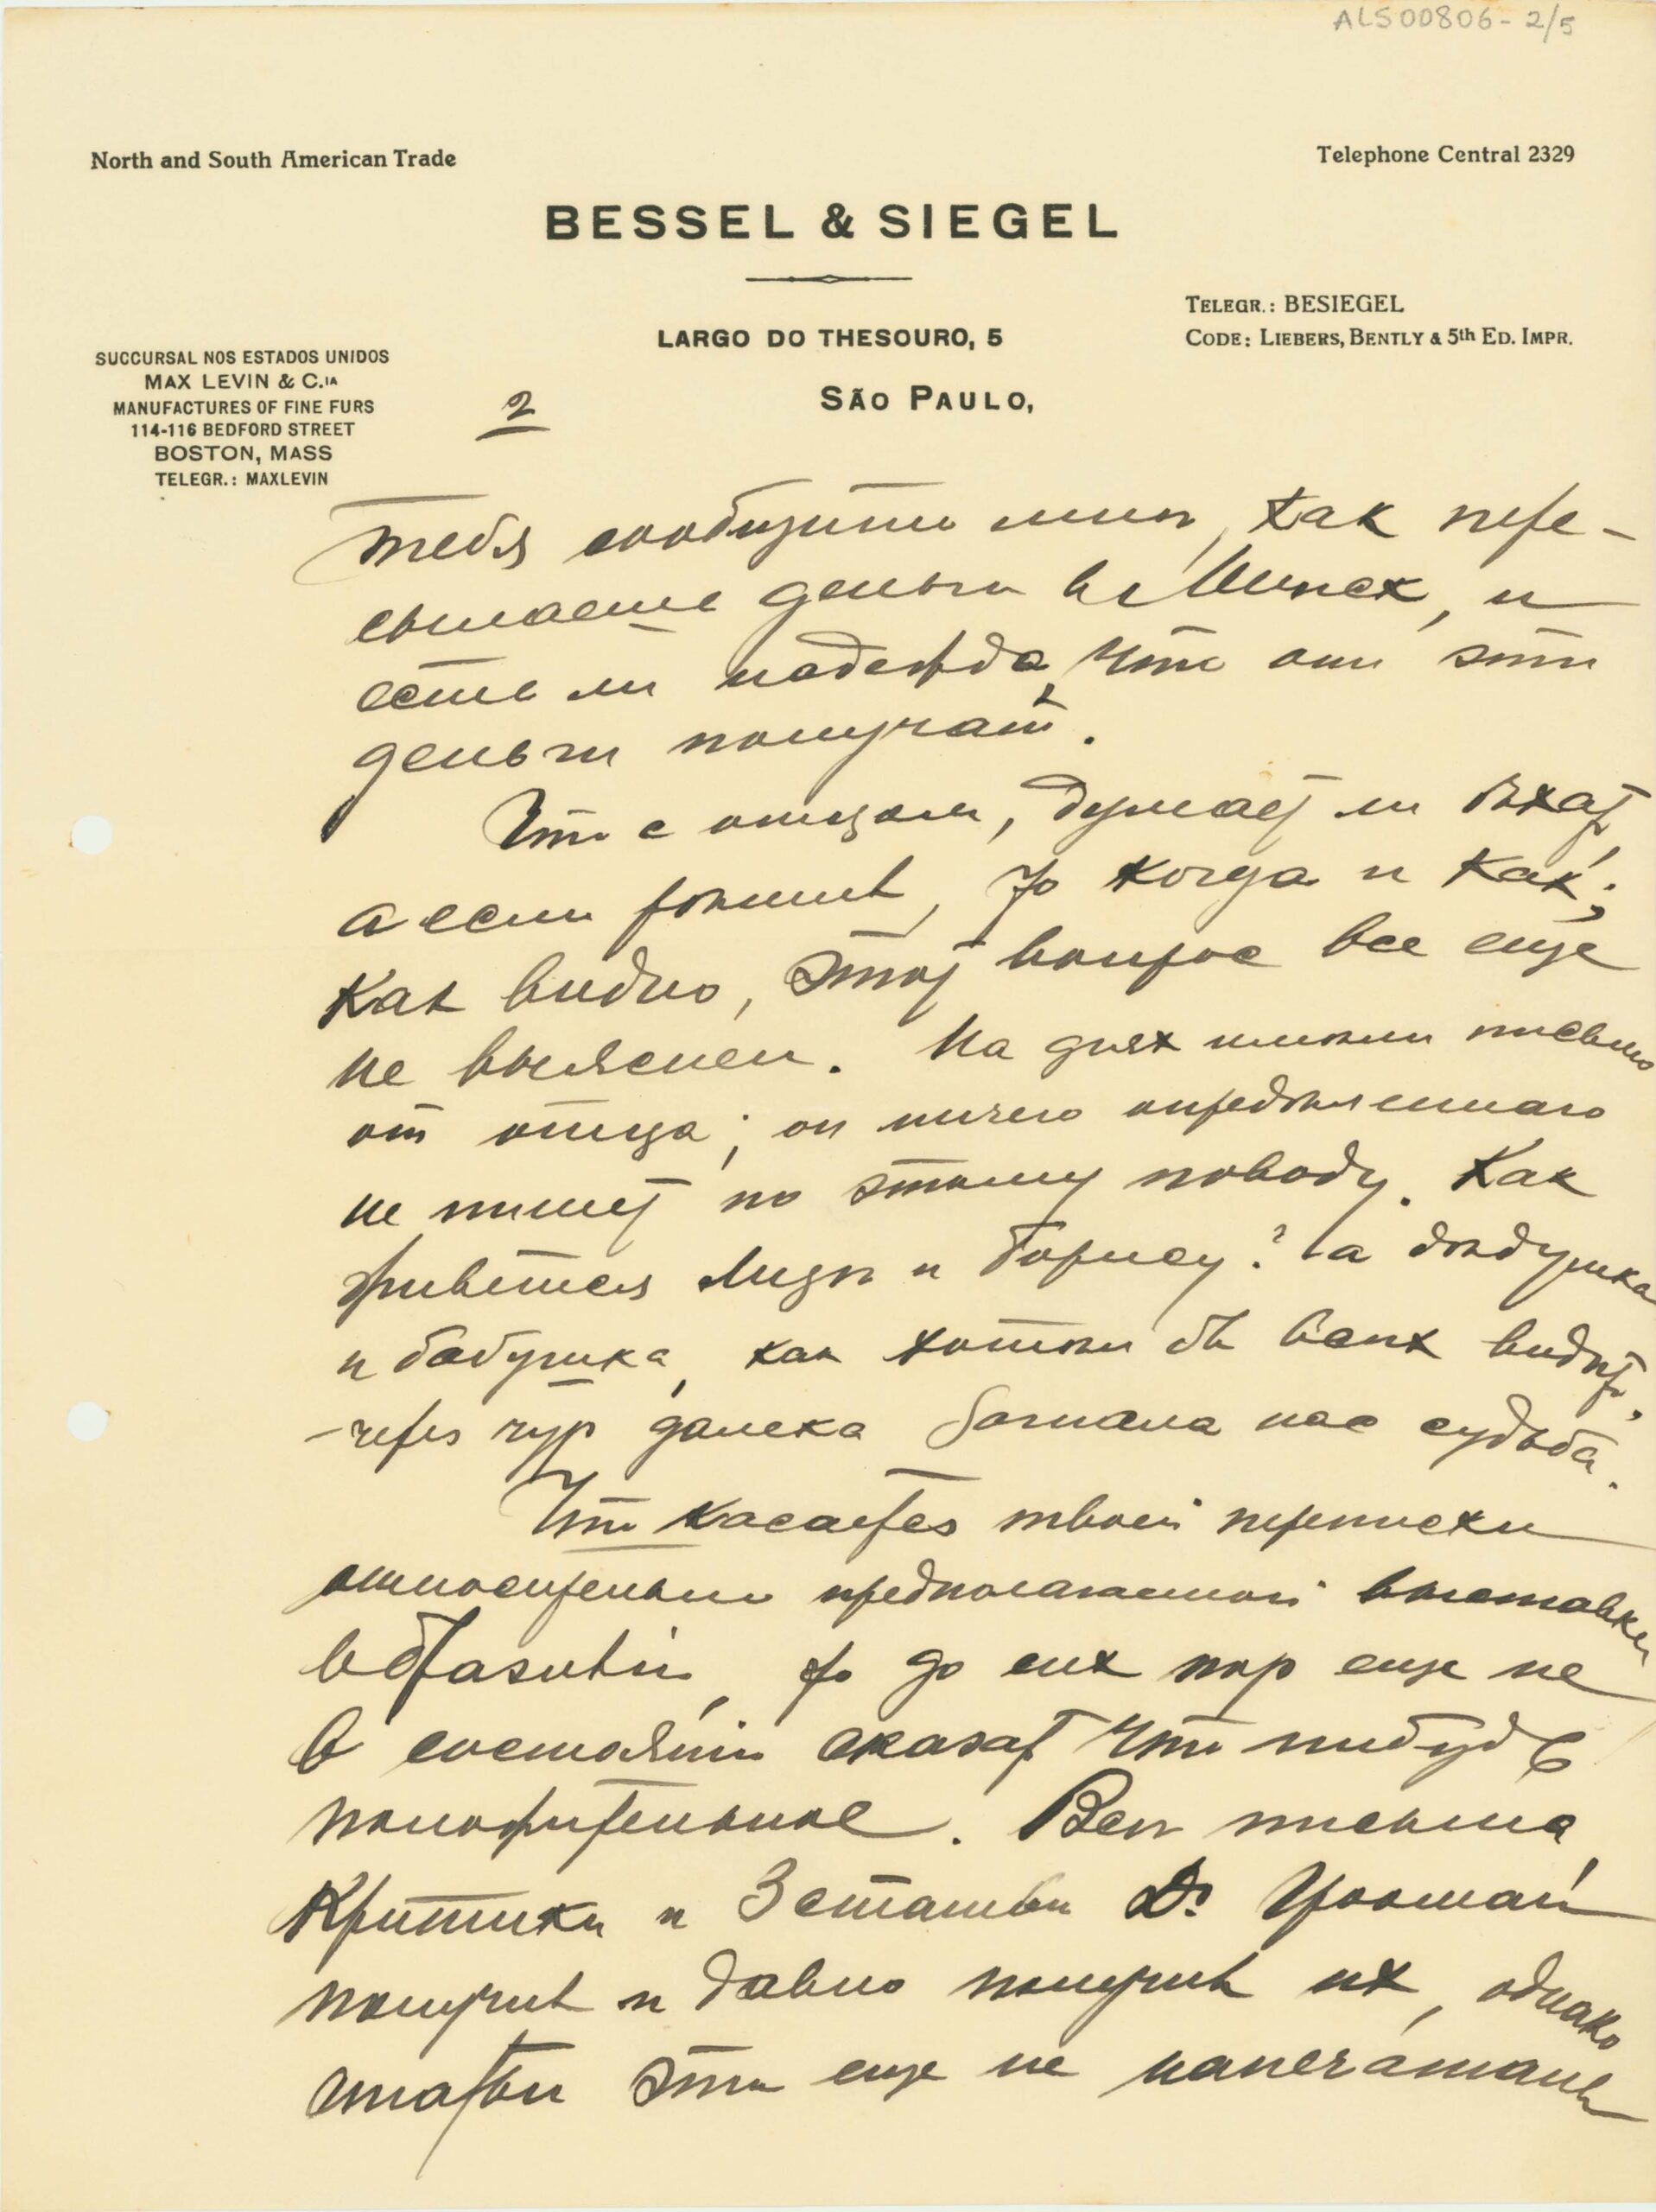 ALS00806-2/5
North and South American Trade
Telephone Central 2329
BESSEL & SIEGEL
TELEGR.: BESIEGEL
LARGO DO THESOURO, 5
CODE: LIEBERS, BENTLY & 5th ED. IMPR.
SUCCURSAL NOS ESTADOS UNIDOS
MAX LEVIN & C.IA
SÃO PAULO,
MANUFACTURES OF FINE FURS
2
114-116 BEDFORD STREET
BOSTON, MASS
TELEGR.: MAXLEVIN
тебя сообщить мнѣ, как пере-
сылаеше деньги в Минск, и
есть ли надежда, что они эти
деньги получат.
Что с отцом, думает ли ѣхат,
а если рѣшил, то когда и как;
как видно, этот вопрос все еще
не выяснен. На днях имѣли письмо
от отца; он ничего опредѣленнаго
не пишет по этому поводу. Как
живется Лизѣ и Борису? а дѣдушка
и бабушка, как хотѣли бы всѣх видѣт,
-через чур далека загнала нас судьба.
Что касается твоей переписки
относительно предполагаемой выставки
в Бразиліи, то до сих пор еще не
в состояніи сказат что нибудь
положительное. Всѣ письма,
критики и Dr.
получил и давно получил их, однако
статьи эти еще не напечатаны